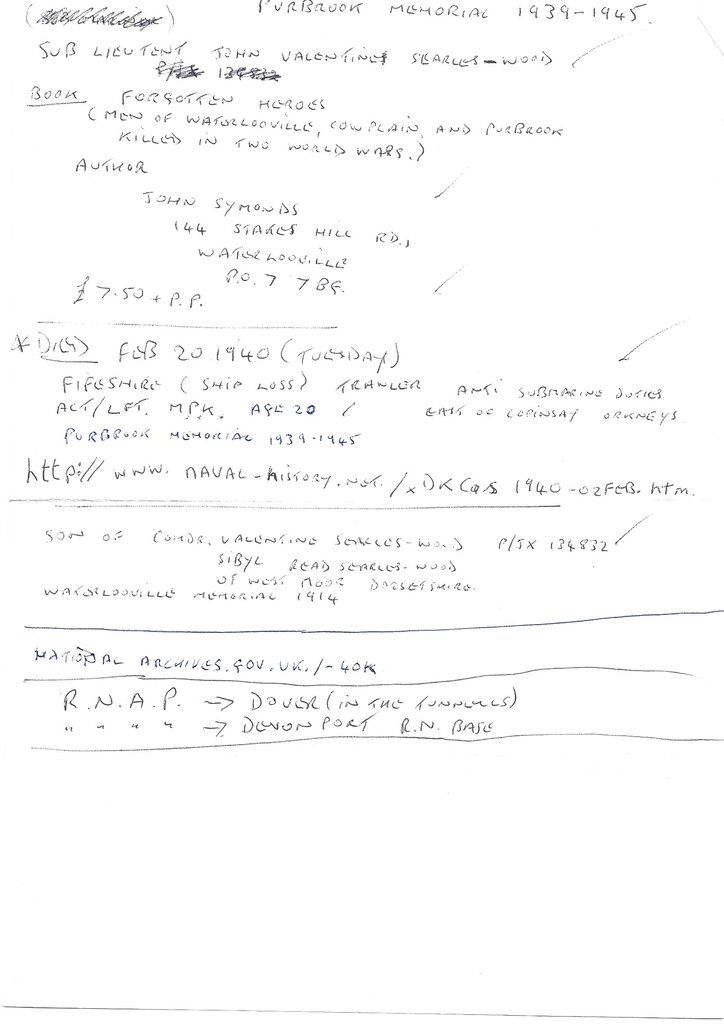 PURBROOK MEMORIAL 1939-1945.
SUB LIEUTENT JOHN VALENTINE SEARLES-WOOD
BOOK FORGOTTEN HEROES
(MEN OF WATERLOOVILLE, COWPLAIN, AND PURBROOK
KILLED IN TWO WORLD WARS.)
AUTHOR
JOHN SYMONDS
144 STAKES HILL RD.,
WATERLOOVILLE
P.O.7 7BG.
£7.50 + P.P.
* DIED FEB 20 1940 (TUESDAY)
FIFESHIRE (SHIP LOSS) TRAWLER ANTI SUBMARINE DUTIES
ACT/LFT. MPK. AGE 20 EAST OF COPINSAY ORKNEYS
PURBROOK MEMORIAL 1939-1945
http:// www. NAVAL-HISTORY.NET./xDKCas 1940-02FEB.htm.
SON OF COMDR. VALENTINE SEARLES-WOOD P/JX 134832
SIBYL READ SEARLES-WOOD
OF WEST MOOR DORSETSHIRE.
WATERLOOVILLE MEMORIAL 1914
NATIONAL ARCHIVES.GOV.UK./-40K
R.N.A.P. → DOVER (IN THE TUNNELLS)
" " " " → DEVONPORT R.N. BASE